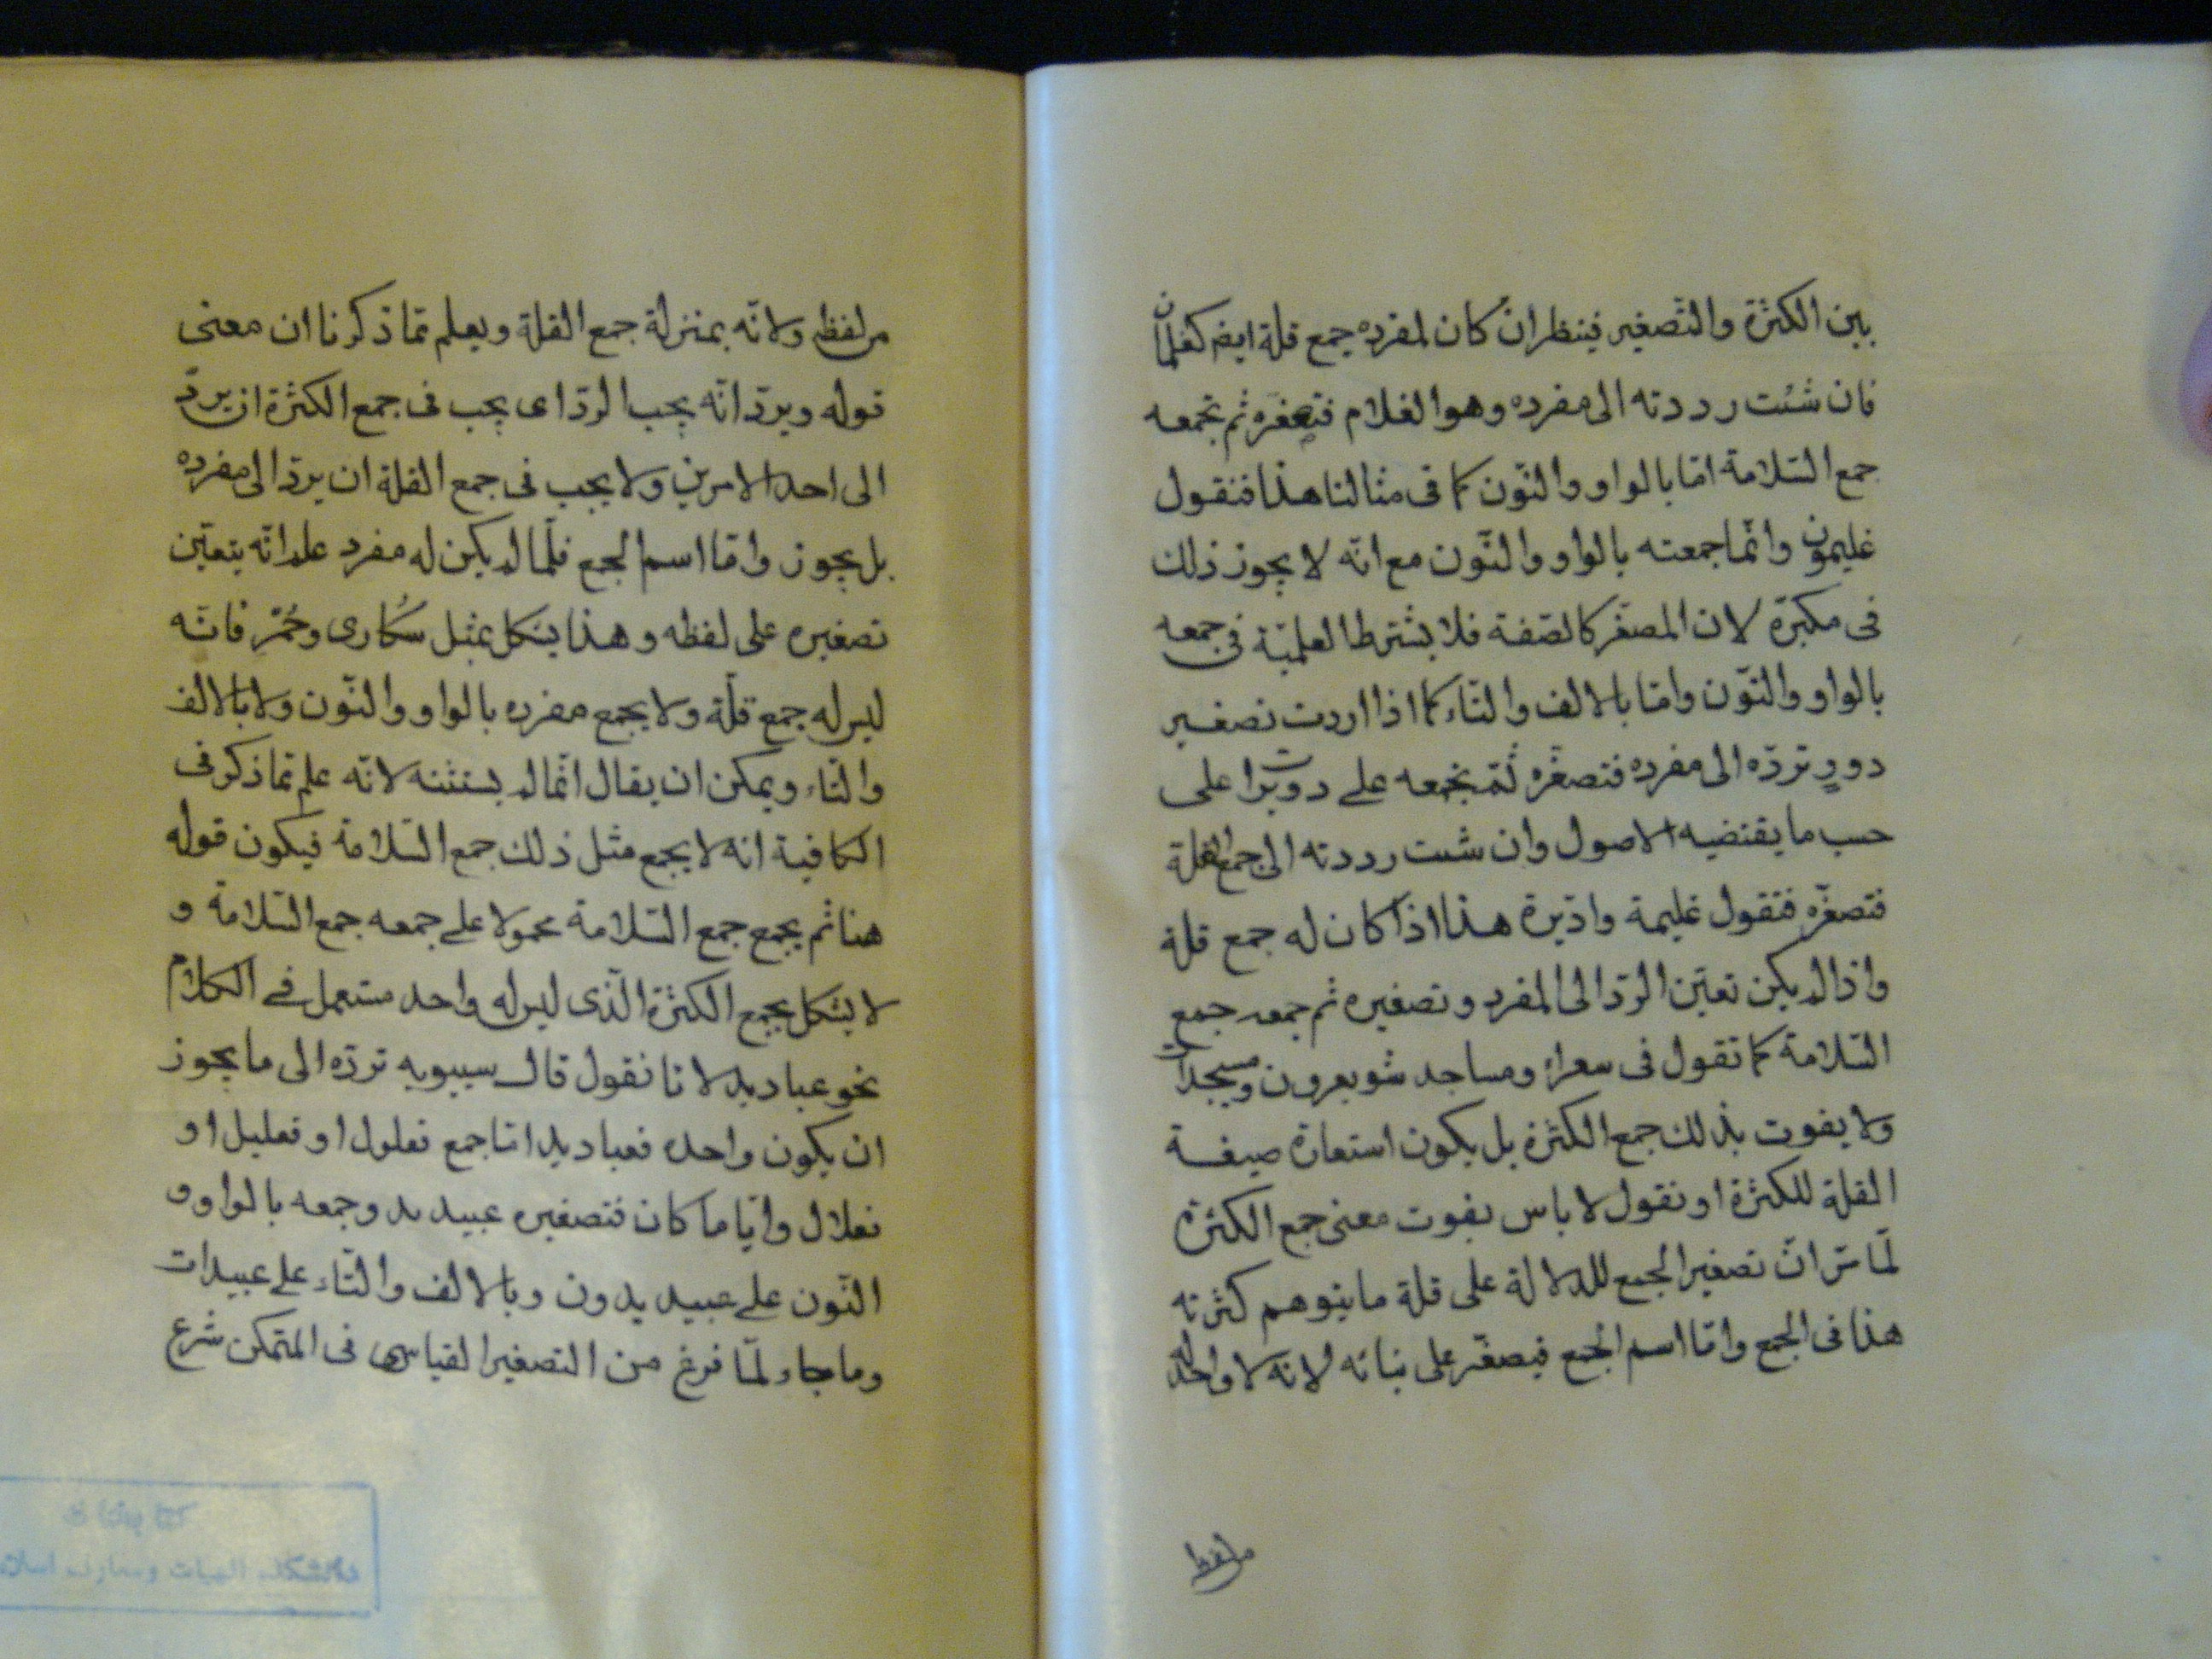 بين الكثرة والتّصغير فينظر ان كان لمفرده جمع قلة ايض كغلمان
فان شئت رددته الى مفرده وهو الغلام فتصغره ثم تجمعه
جمع السّلامة امّا بالواو والنّون كما فى مثالنا هذا فنقول
غليمون وانّما جمعته بالواو والنّون مع انّه لا يجوز ذلك
فى مكبّرة لان المصغّر كالصّفة فلا يشترط العلميّة فى جمعه
بالواو والنّون وامّا بالالف والتّاء كما اذا اردت تصغير
دور تردّه الى مفرده فتصغّره ثمّ تجمعه على دويرات على
حسب ما يقتضيه الاصول وان شئت رددته الى جمع القلة
فتصغّره فتقول غليمة وادّيرة هذا اذا كان له جمع قلة
واذا لم يكن تعيّن الردّ الى المفرد وتصغيره ثم جمعه جمع
السّلامة كما تقول فى شعراء ومساجد شويعرون ومسيجدات
ولا يفوت بذلك جمع الكثرة بل يكون استعارة صيغة
القلة للكثرة او نقول لا باس بفوت معنى جمع الكثرة
لمّا مرّ انّ تصغير الجمع للدلالة على قلة ما يتوهم كثرته
هذا فى الجمع وامّا اسم الجمع فيصغّر على بنائه لانه لا واحد له
من لفظ
من لفظه ولانّه بمنزلة جمع القلة ويعلم ممّا ذكرنا ان معنى
قوله ويردّ انّه يجب الردّ اى يجب فى جمع الكثرة ان يردّ
الى احد الامرين ولا يجب فى جمع القلة ان يردّ الى مفرده
بل يجوز وامّا اسم الجمع فلمّا لم يكن له مفرد علم انّه يتعيّن
تصغيره على لفظه وهذا يشكل بمثل سُكارى وحُمْر فانّه
ليس له جمع قلّة ولا يجمع مفرده بالواو والنّون ولا بالالف
والتّاء ويمكن ان يقال انّما لم يستثنه لانّه علم ممّا ذكر فى
الكافية انه لا يجمع مثل ذلك جمع السّلامة فيكون قوله
هنا ثم يجمع جمع السّلامة محمولا على جمعه جمع السّلامة و
لا يشكل بجمع الكثرة الّذى ليس له واحد مستعمل فى الكلام
نحو عباديد لانا نقول قال سيبويه تردّه الى ما يجوز
ان يكون واحده فعباديد امّا جمع فعلول او فعليل او
فعلال وايّا ما كان فتصغيره عبيديد وجمعه بالواو و
النّون على عبيديدون وبالالف والتّاء على عبيدات
وما جاء لمّا فرغ من التصغير القياسى فى المتمكن شرع
دانشكده الهيات ومعارف اسلا